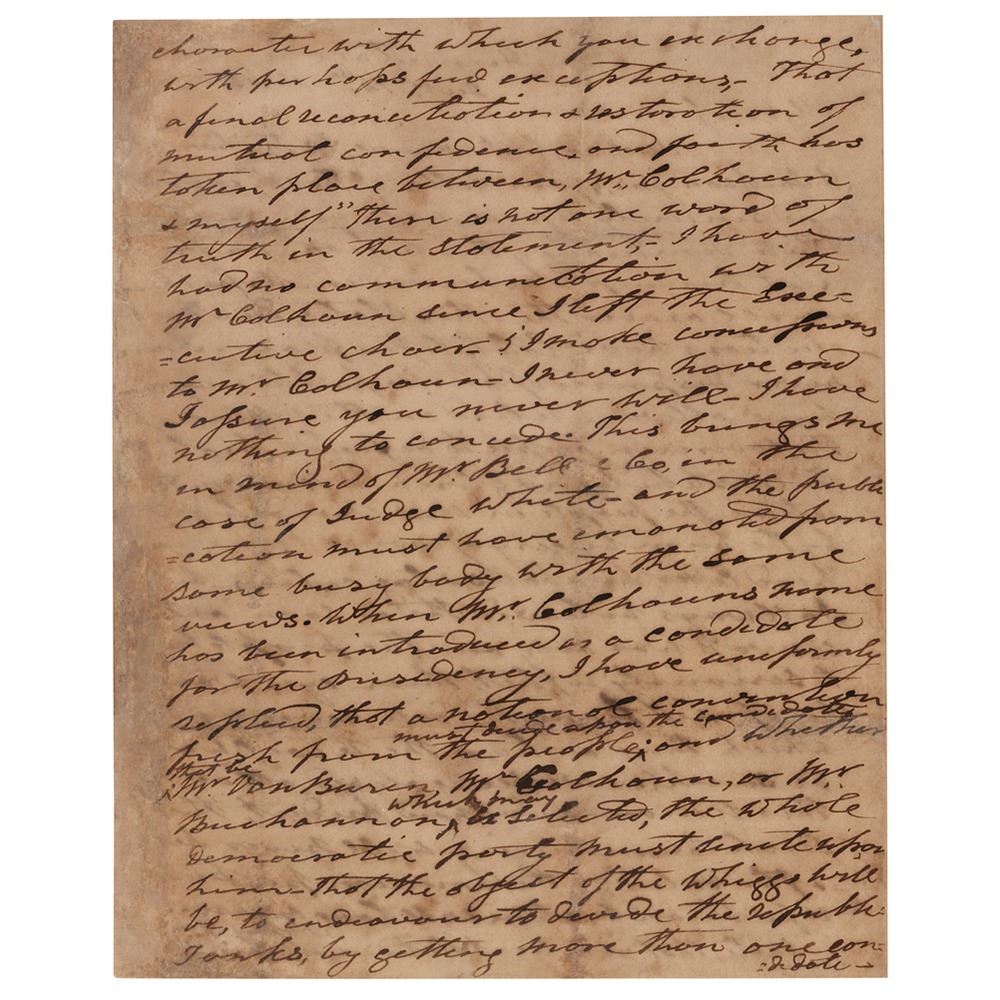 character with which you exchange,
with perhaps few exceptions,- That
a final reconciliation & restoration of
mutual confidence, and faith has
token place between, Mr. Colhoun
& myself" There is not one word of
truth in the statement,- I have
had no communication with
Mr Colhoun since I left the Exe=
=cutive chair- I make concessions
to Mr. Colhoun- I never have and
I assure you never will- I have
nothing to concede. This brings me
in mind of Mr. Bell & Co, in the
case of Judge White- and the publi
=cation must have emanated from
some busy body with the same
views. When Mr. Colhouns name
has been introduced as a candidate
for the Presidency, I have uniformly
replied, that a national convention
must decide upon the candidate
fresh from the people; and whether
that be
Mr Van Buren Mr Colhoun, or Mr.
which may
Buchannon, be selected, the whole
democratic party must unite upon
him- That the object of the Whiggs will
be, to endeavour to devide the republi-
ranks, by getting more than one con-
=didate-